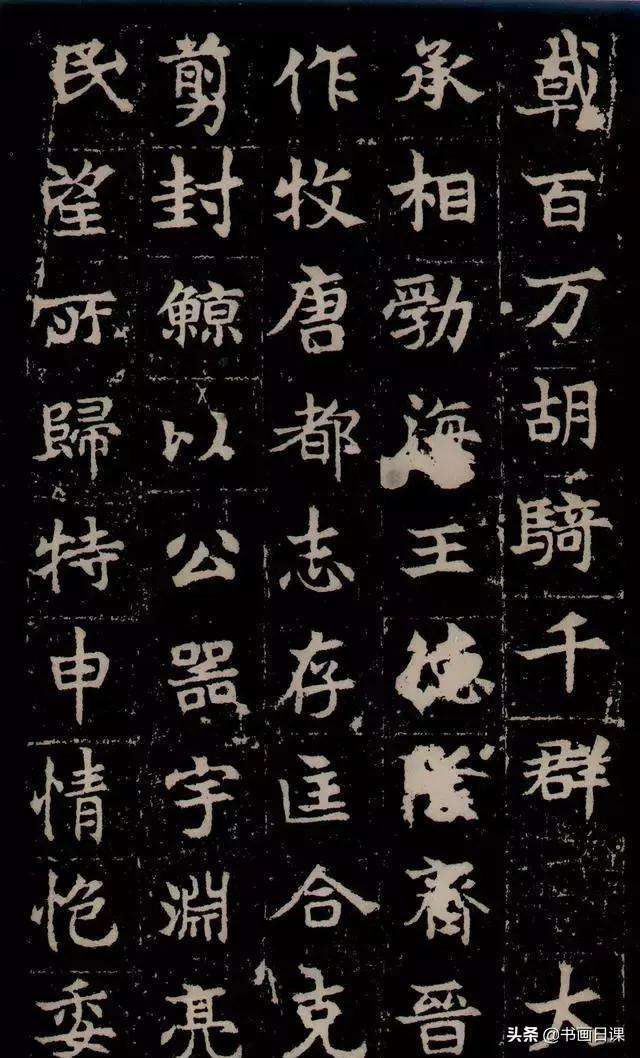 戟百万胡騎千群 大
承相勃海王德隆齊晉
作牧唐都志存匡合克
剪封鯨以公器宇淵亮
民望所歸特申情抱委
头条 @书画日课